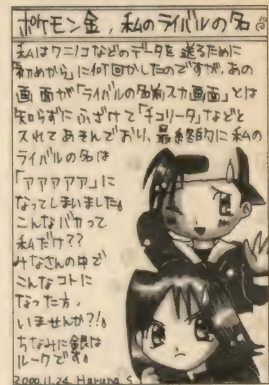 ポケモン金, 私のライバルの名
私はワニノコなどのデータを送るために
「初めから」に何回かしたのですが、あの
画面が「ライバルの名前入力画面」とは
知らずにふざけて「チコリータ」などと
入れてあそんでおり、最終的に私の
ライバルの名は
「アアアアア」に
なってしまいました。
こんなバカって
私だけ??
みなさんの中で
こんなコトに
なった方、
いませんか?!
ちなみに銀は
ルークです。
2000.11.24. Haruna S